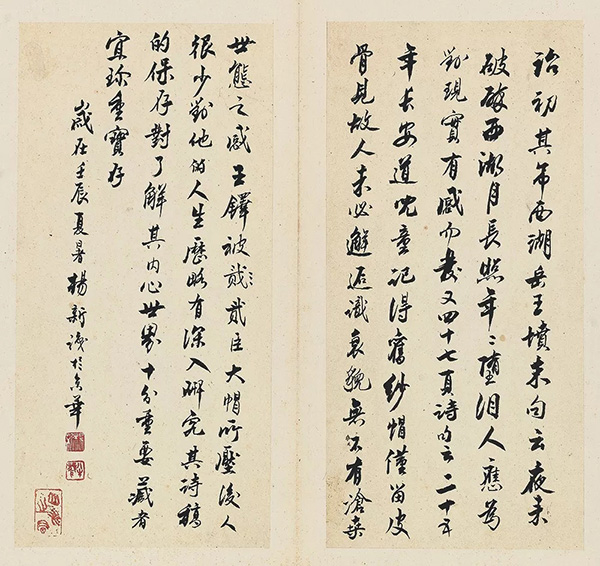 治初其吊西湖岳王墳末句云夜来
破碎西湖月長照年々墮泪人應爲
對現實有感而發又四十七頁詩句云二十五
年長安道兒童記得舊紗帽僅留皮
骨見故人未必邂逅識衰貌無不有滄桑
世態之感王鐸被貳貳臣大帽所壓後人
很少對他的人生歷略有深入研究其詩稿
的保存對了解其內心世界十分重要藏者
宜珍重寶存
歲在壬辰夏暑楊新識於京華